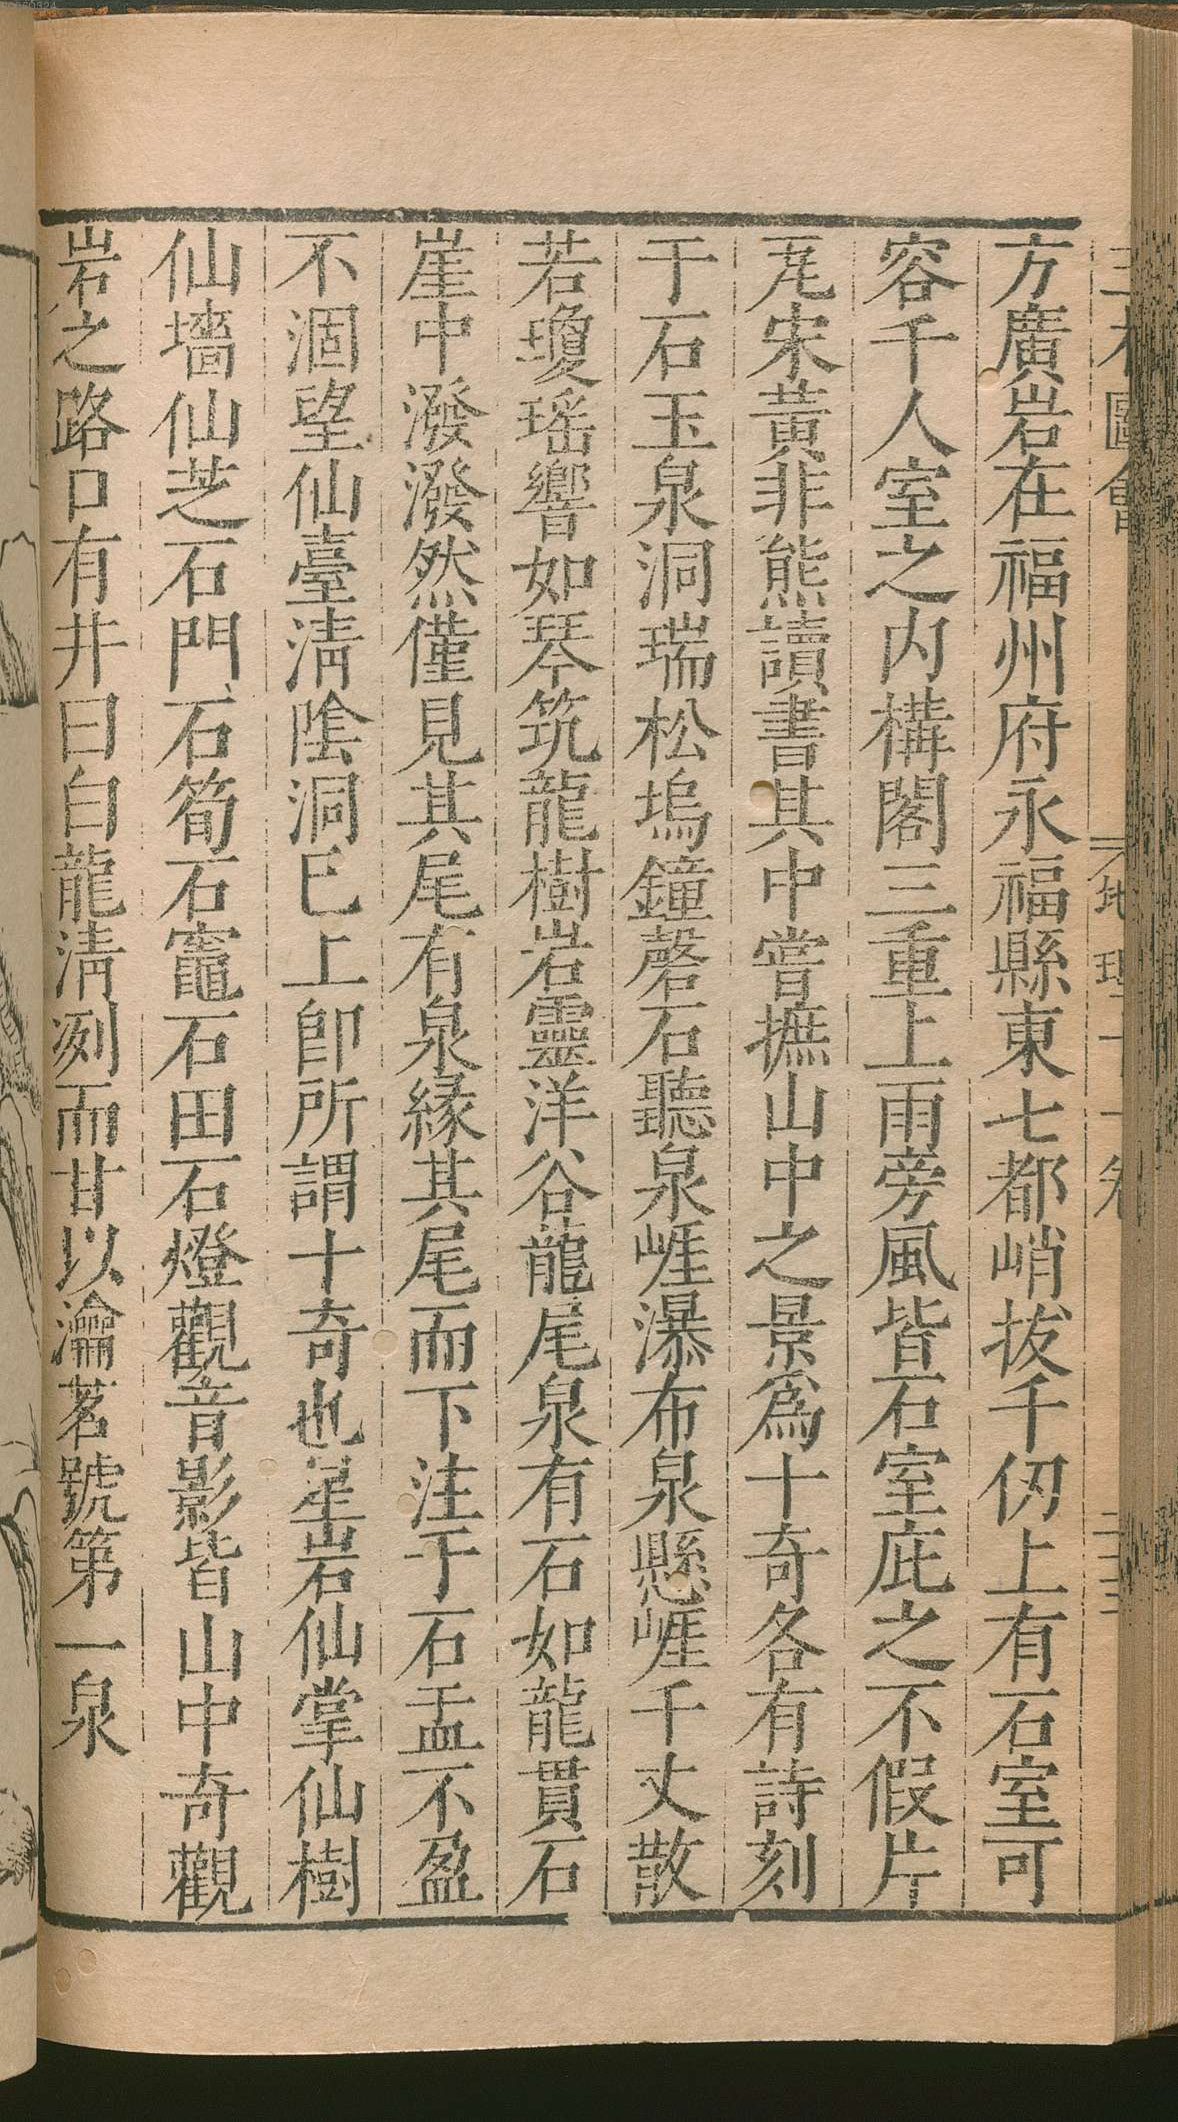 方廣岩在福州府永福縣東七都峭拔千仞上有石室可
容千人室之内構閣三重上雨旁風皆石室庇之不假片
尾宋黃非熊讀書其中嘗撫山中之景爲十奇各有詩刻
于石玉泉洞瑞松塢鐘磬石聽泉崕瀑布泉懸崕千丈散
若瓊瑶響如琴筑龍樹岩靈洋谷龍尾泉有石如龍貫石
崖中潑潑然僅見其尾有泉緣其尾而下注于石盂不盈
不涸望仙臺淸陰洞巳上卽所謂十奇也星岩仙掌仙樹
仙墻仙芝石門石筍石竈石田石燈觀音影皆山中奇觀
岩之路口有井曰白龍淸冽而甘以瀹茗號第一泉